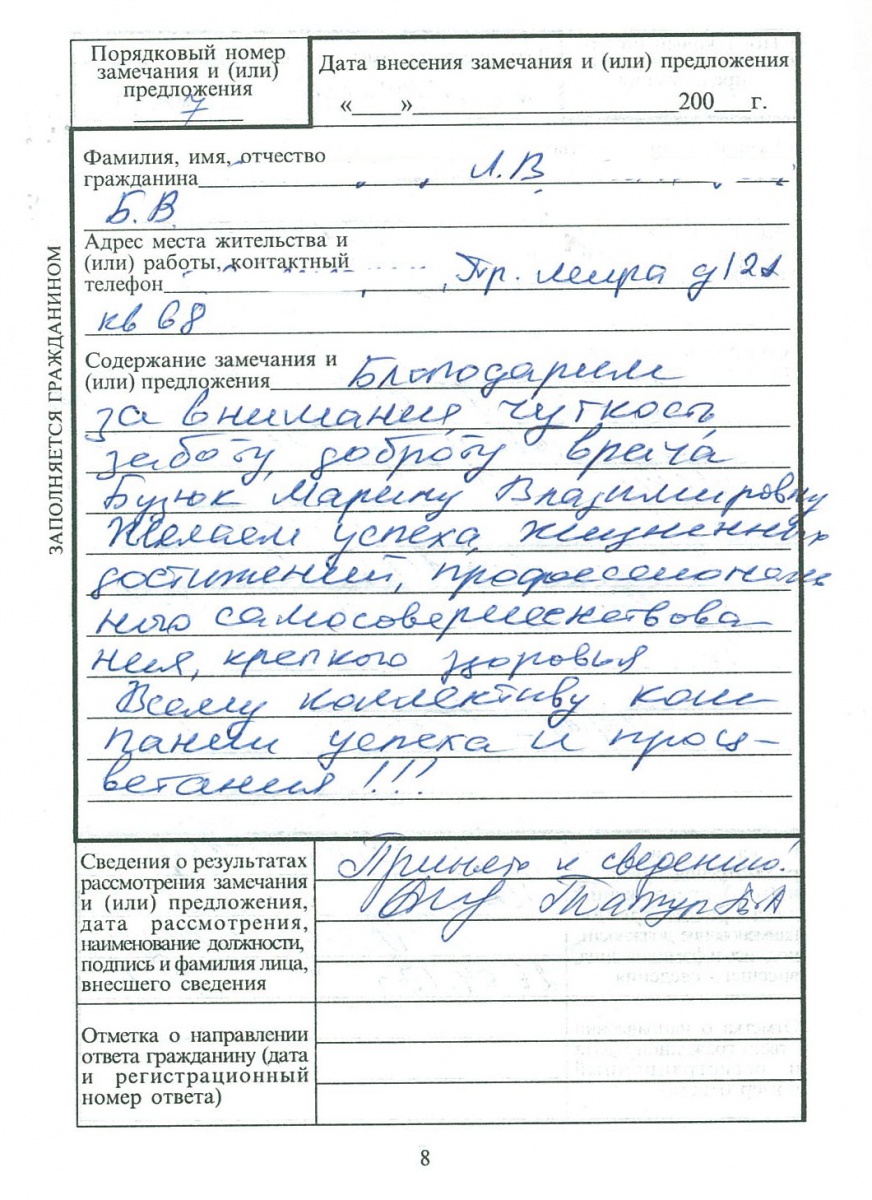 Порядковый номер
замечания и (или)
предложения
7
Дата внесения замечания и (или) предложения
«____»____________________200___г.
ЗАПОЛНЯЕТСЯ ГРАЖДАНИНОМ
Фамилия, имя, отчество
гражданина Л.В
Б.В.
Адрес места жительства и
(или) работы, контактный
телефон Пр. мира д 12
кв 68
Содержание замечания и
(или) предложения Благодарим
за внимания, чуткость,
заботу, доброту врача
Бузюк Марину Владимировну
Желаем успеха, жизненных
достижений, професиональ
ного самосовершенствова
ния, крепкого здоровья
Всему коллективу ком
пании успеха и проц-
ветания!!!
Сведения о результатах
рассмотрения замечания
и (или) предложения,
дата рассмотрения,
наименование должности,
подпись и фамилия лица,
внесшего сведения
Принято к сведению!
Отметка о направлении
ответа гражданину (дата
и регистрационный
номер ответа)
8